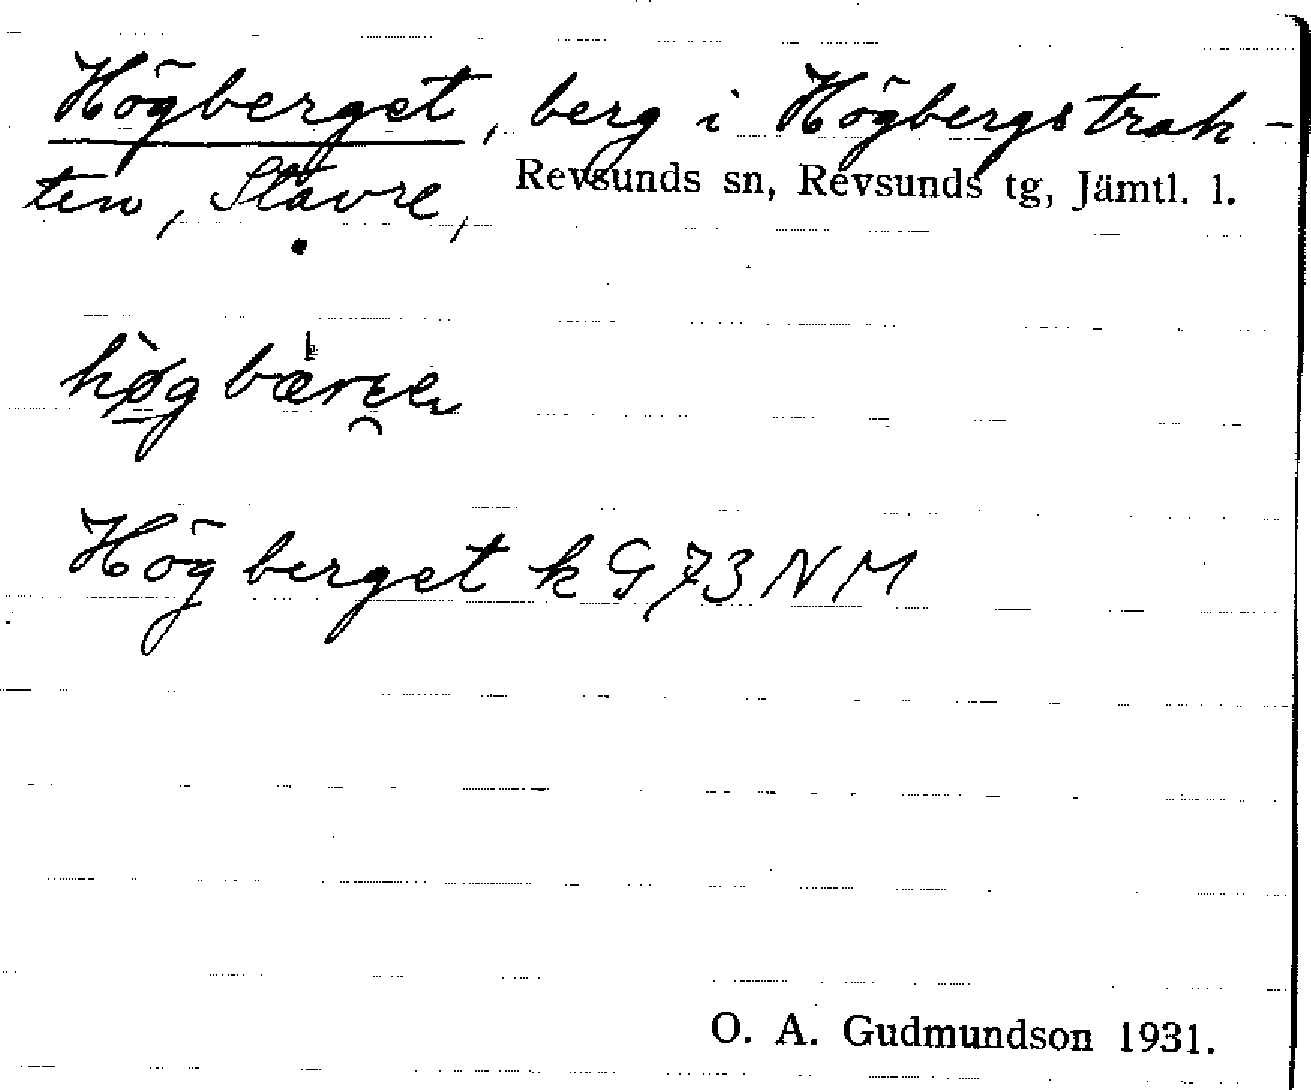 Högberget, berg i Högbergstrak-
ten, Stavre, Revsunds sn, Revsunds tg, Jämtl. l.
Högberget k G 73 NM
O. A. Gudmundson 1931.